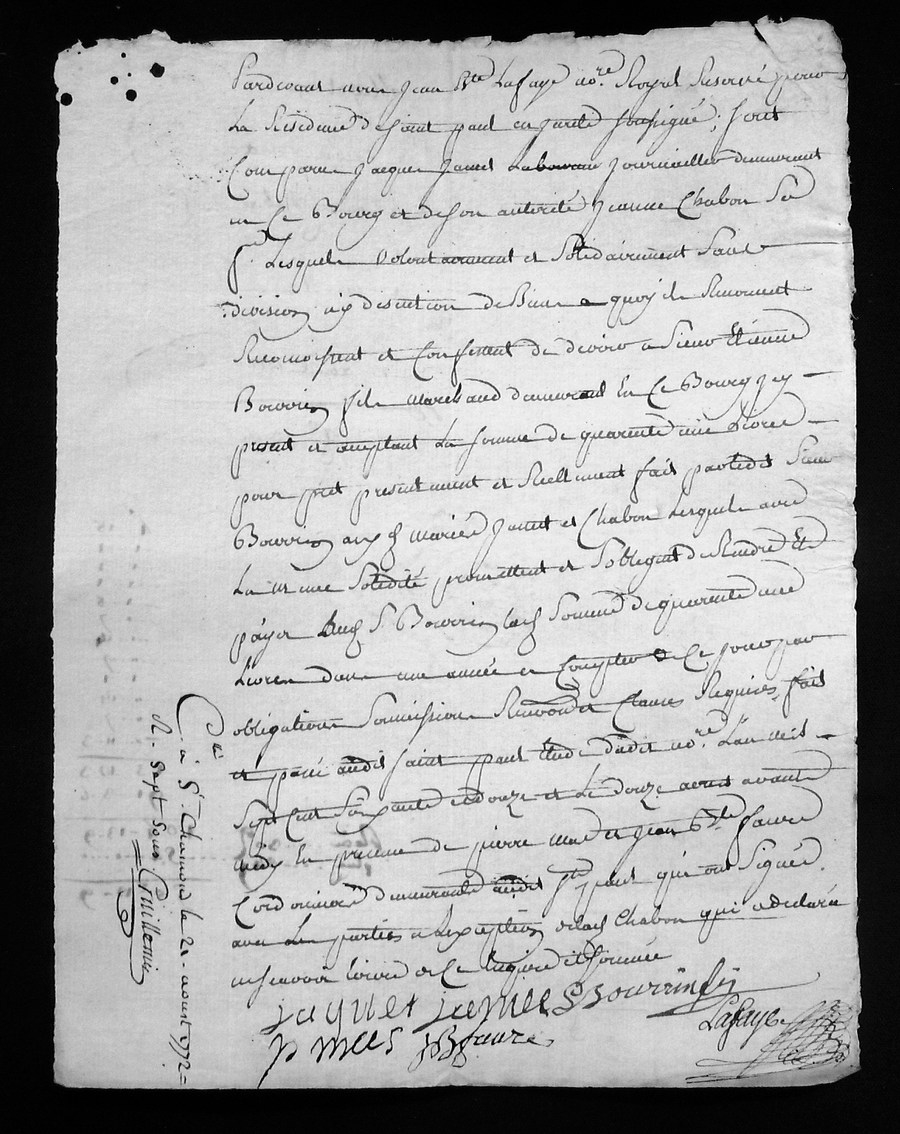 Pardevant nous Jean Bte Lafaye nore Royal Reservé pour
La Residence de saint paul en jarest soussigné, sont
Comparu Jacque Jamet Laboureur Journailler demeurant
en Ce Bourg et de son autorité Jeanne Chabon Sa
fe Lesquels Volontairement et Solidairement Sans
division ny discution de Biens a quoy ils Renoncent
Reconnoissent et Confessent de devoir a Sieur Etienne
Bourrin fils marchand demeurant En Ce Bourg jcy
present et acceptant La somme de quarente une Livres
pour pret presentement et Reellement fait par ledit Sieur
Bourrin aux d mariés Jamet et Chabon Lesquels avec
La meme Solidité promettent et Sobligent de Rendre Et
payer aud S Bourrin lad Somme de quarente une
Livres dans une année a Compter de Ce jour par
obligations Soumissions Renond et Clauses Requises, fait
et passé audit saint paul Etude dudit nore L'an mil
Sept Cent Soixante et douze et Le douze aoust avant
midy En presence de pierre et Jean Bte faure
Cordonniers demeurants audit St paul qui ont Signés
avec Les parties a Lexception de lad Chabon qui a Declaré
ne scavoir Ecrire de Ce Enquise et Sommée
jaques jamet EBourrin fils
p mees JBfaure Lafaye
Clé a St Chamond le 21 aoust 1772
R. Sept Sous Guillemin